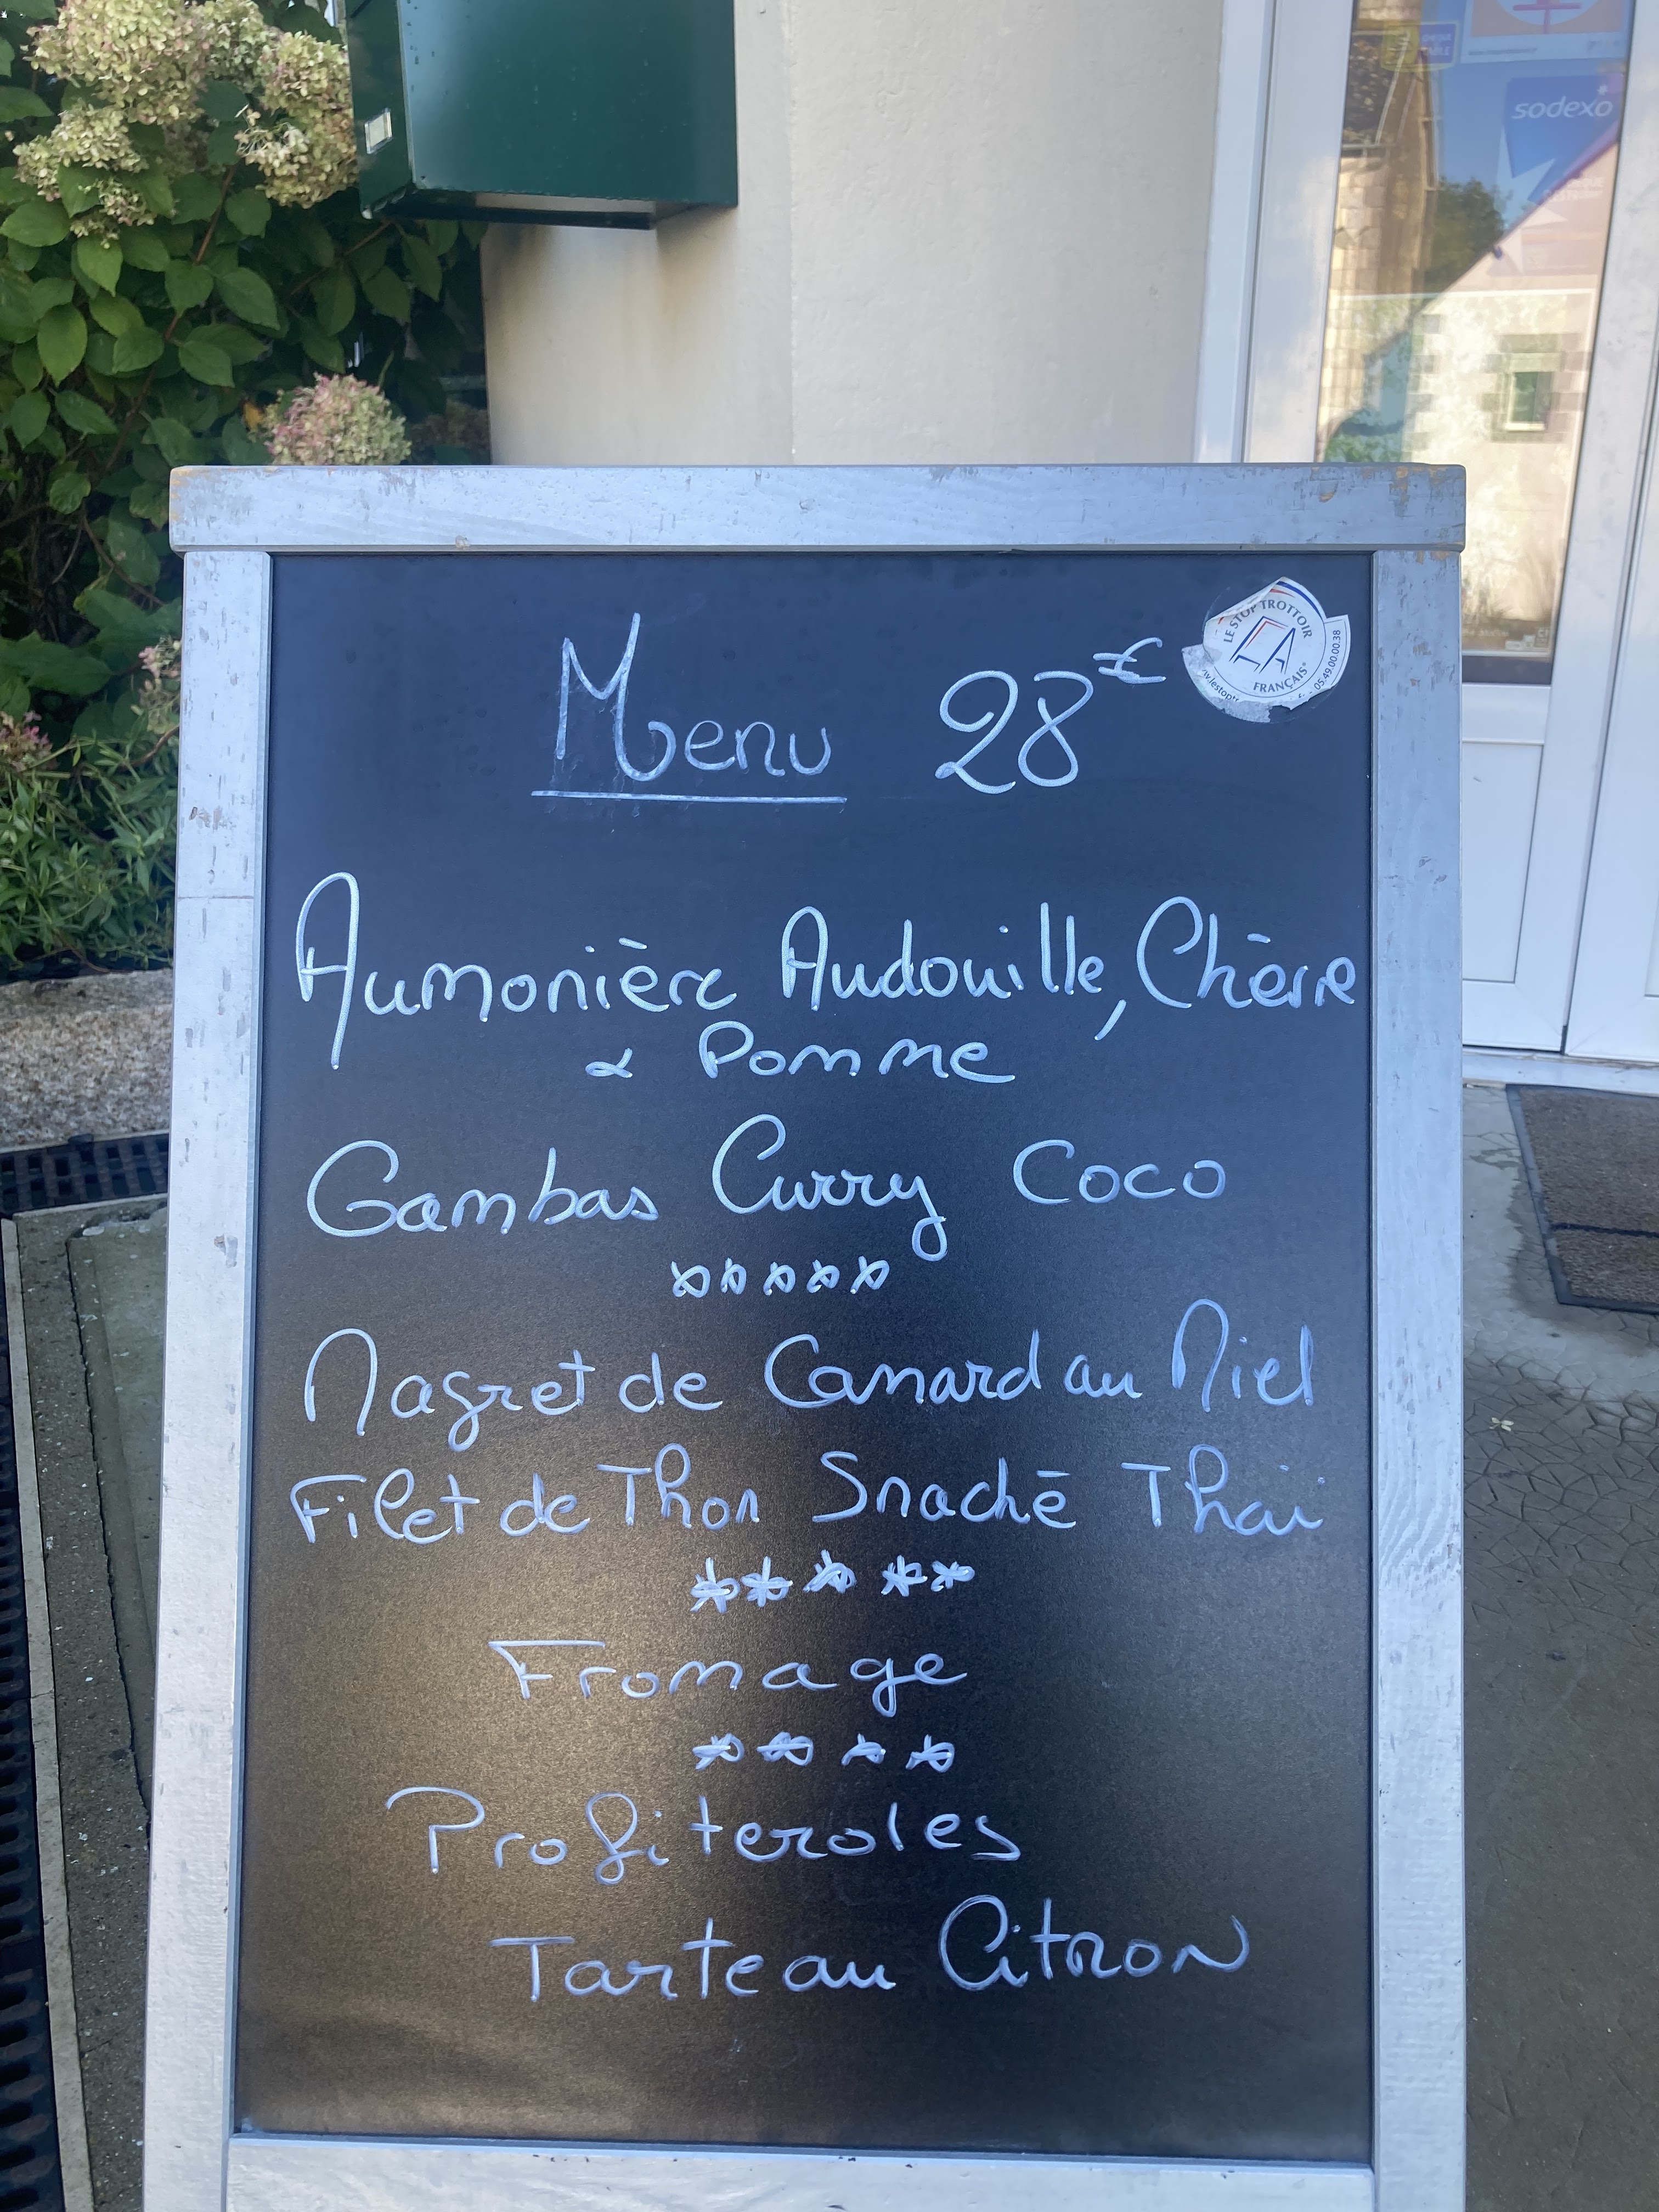 sodexo
LE STOP TROTTOIR
FRANÇAIS
05.49.00.00.38
Menu 28€
Aumonière Andouille, Chèvre
& Pomme
Gambas Curry Coco
*****
Magret de Canard au Miel
Filet de Thon Snaché Thaï
*****
Fromage
****
Profiteroles
Tarte au Citron